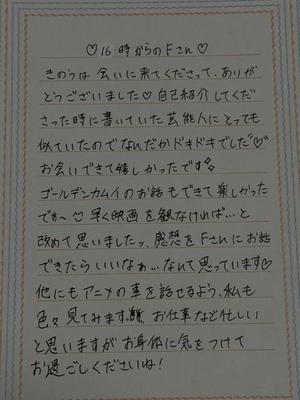 ♡16時からのFさん♡
きのうは会いに来てくださって、ありが
とうございました♡自己紹介してくだ
さった時に書いていた芸能人にとっても
似ていたのでなんだかドキドキでした
お会いできて嬉しかったです
ゴールデンカムイのお話もできて楽しかった
です〜 早く映画を観なければ…と
改めて思いましたっ、感想をFさんにお話
できたらいいなぁ…なんて思っています♡
他にもアニメの事を話せるよう、私も
色々見てみます、お仕事など忙しい
と思いますがお身体に気をつけて
お過ごしくださいね!